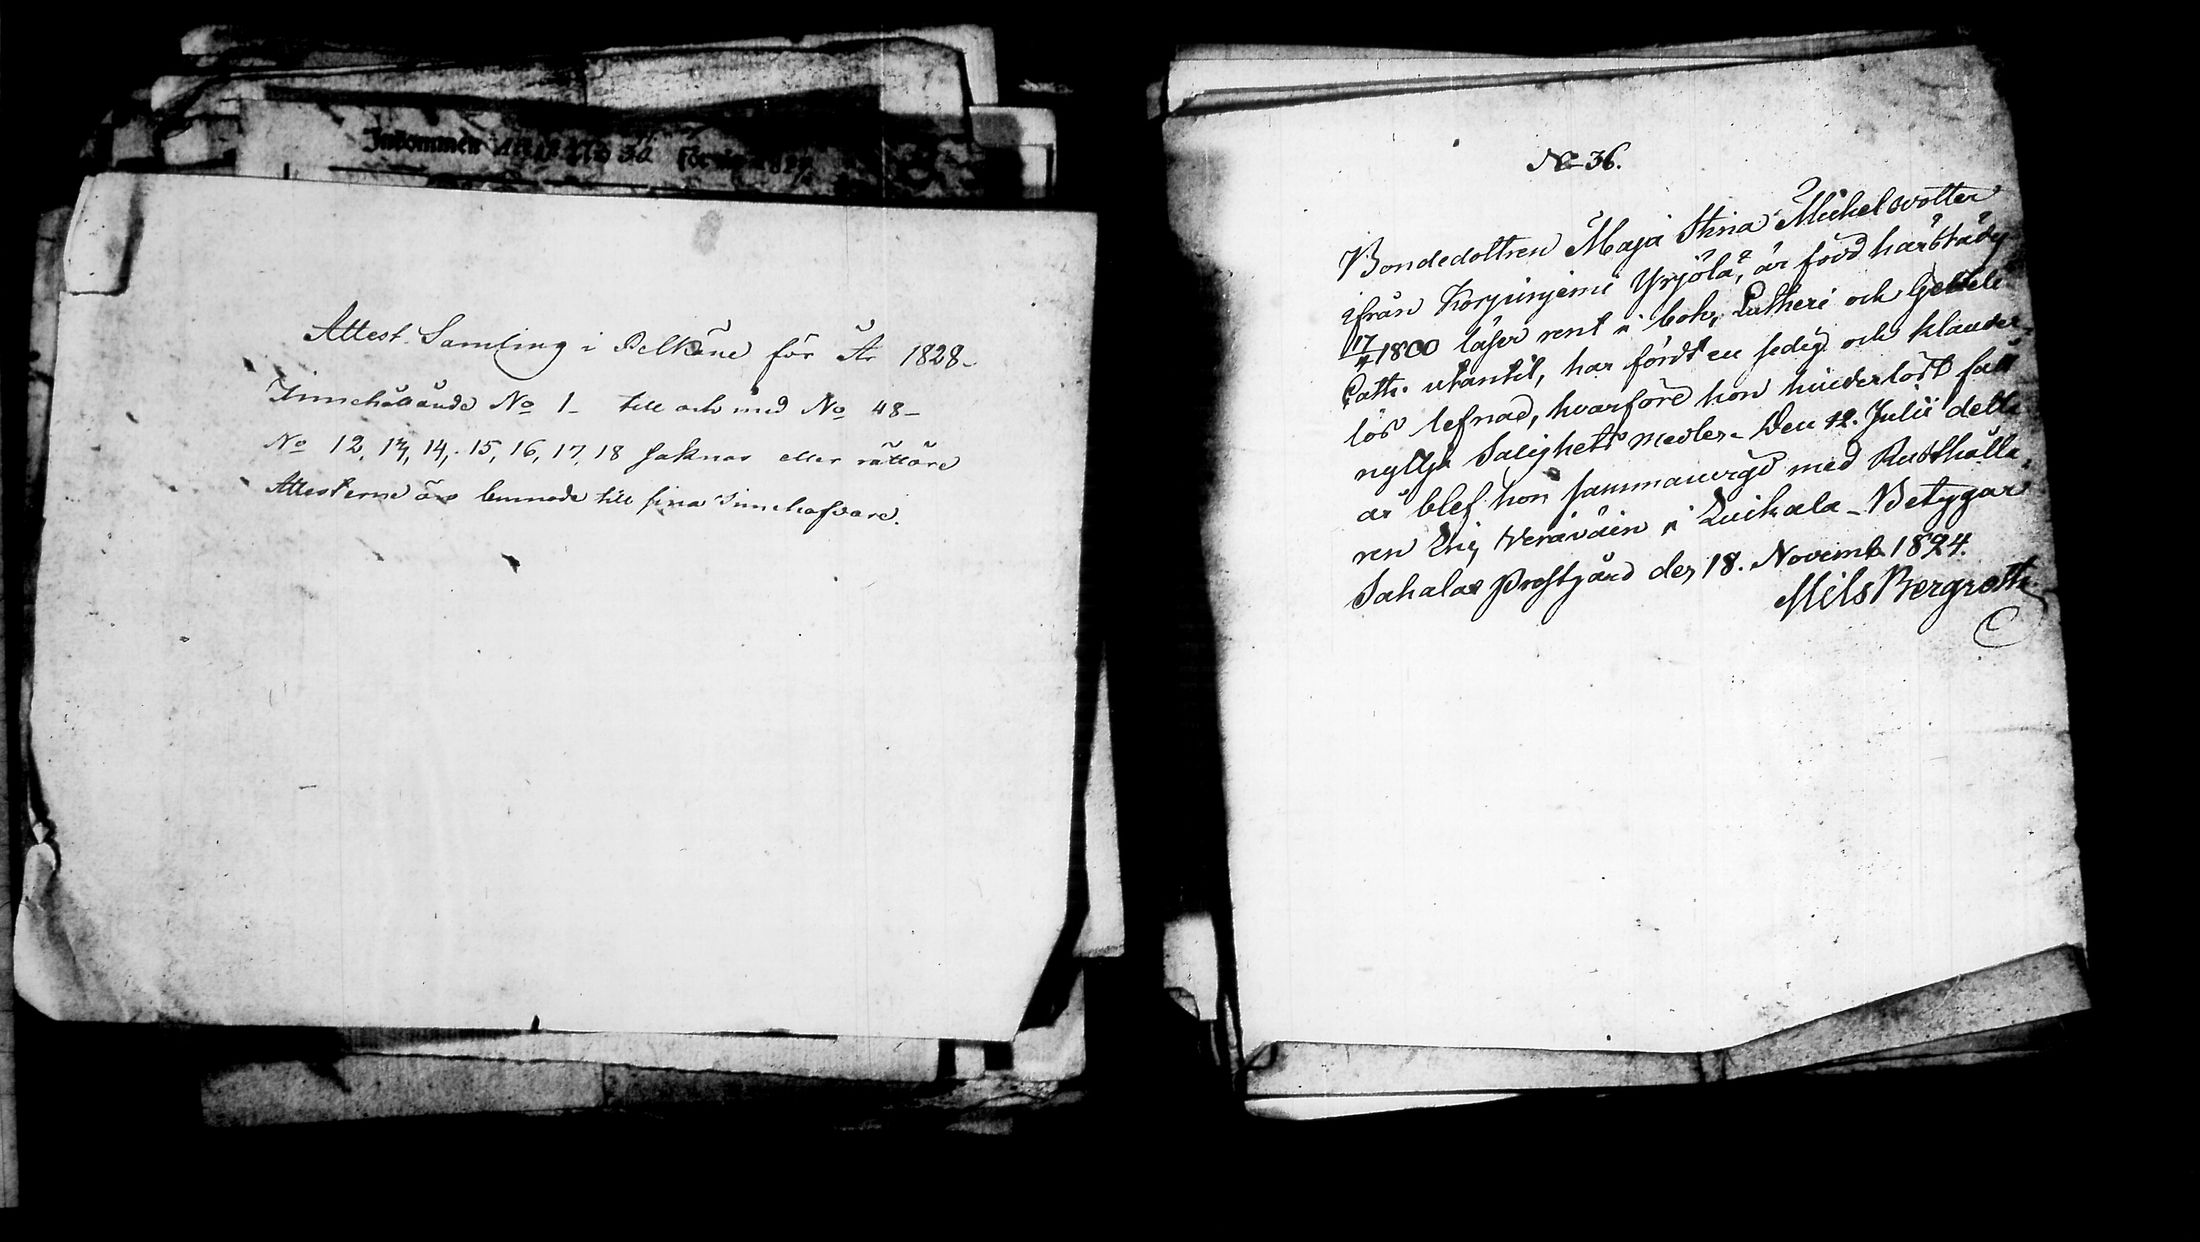 Inkommen
Attest Samling i Pelkäne för År 1828-
Innehållande No 1- till och med No 48-
No 12, 13, 14, 15, 16, 17, 18 saknas eller rättare
Attesterne äro lemnade till sina Innehafvare.
No 36.
Bondedottren Maja Stina Michelsdotter
ifrån Korpiniemi Yrjölä, är född härstädes
17/4 1800 läser rent i bok, Lutheri och Gezelii
Cath. utantil, har fördt en sedig och klander-
lös lefnad, hvarföre hon hinderlöst fått
nyttja Salighets medlen. Den 12. Julii detta
år blef hon sammanvigd med Rusthålla-
ren Eric i Luikala - Betygar
Sahalax Prostgård den 18. Novemb. 1824.
Nils Bergroth